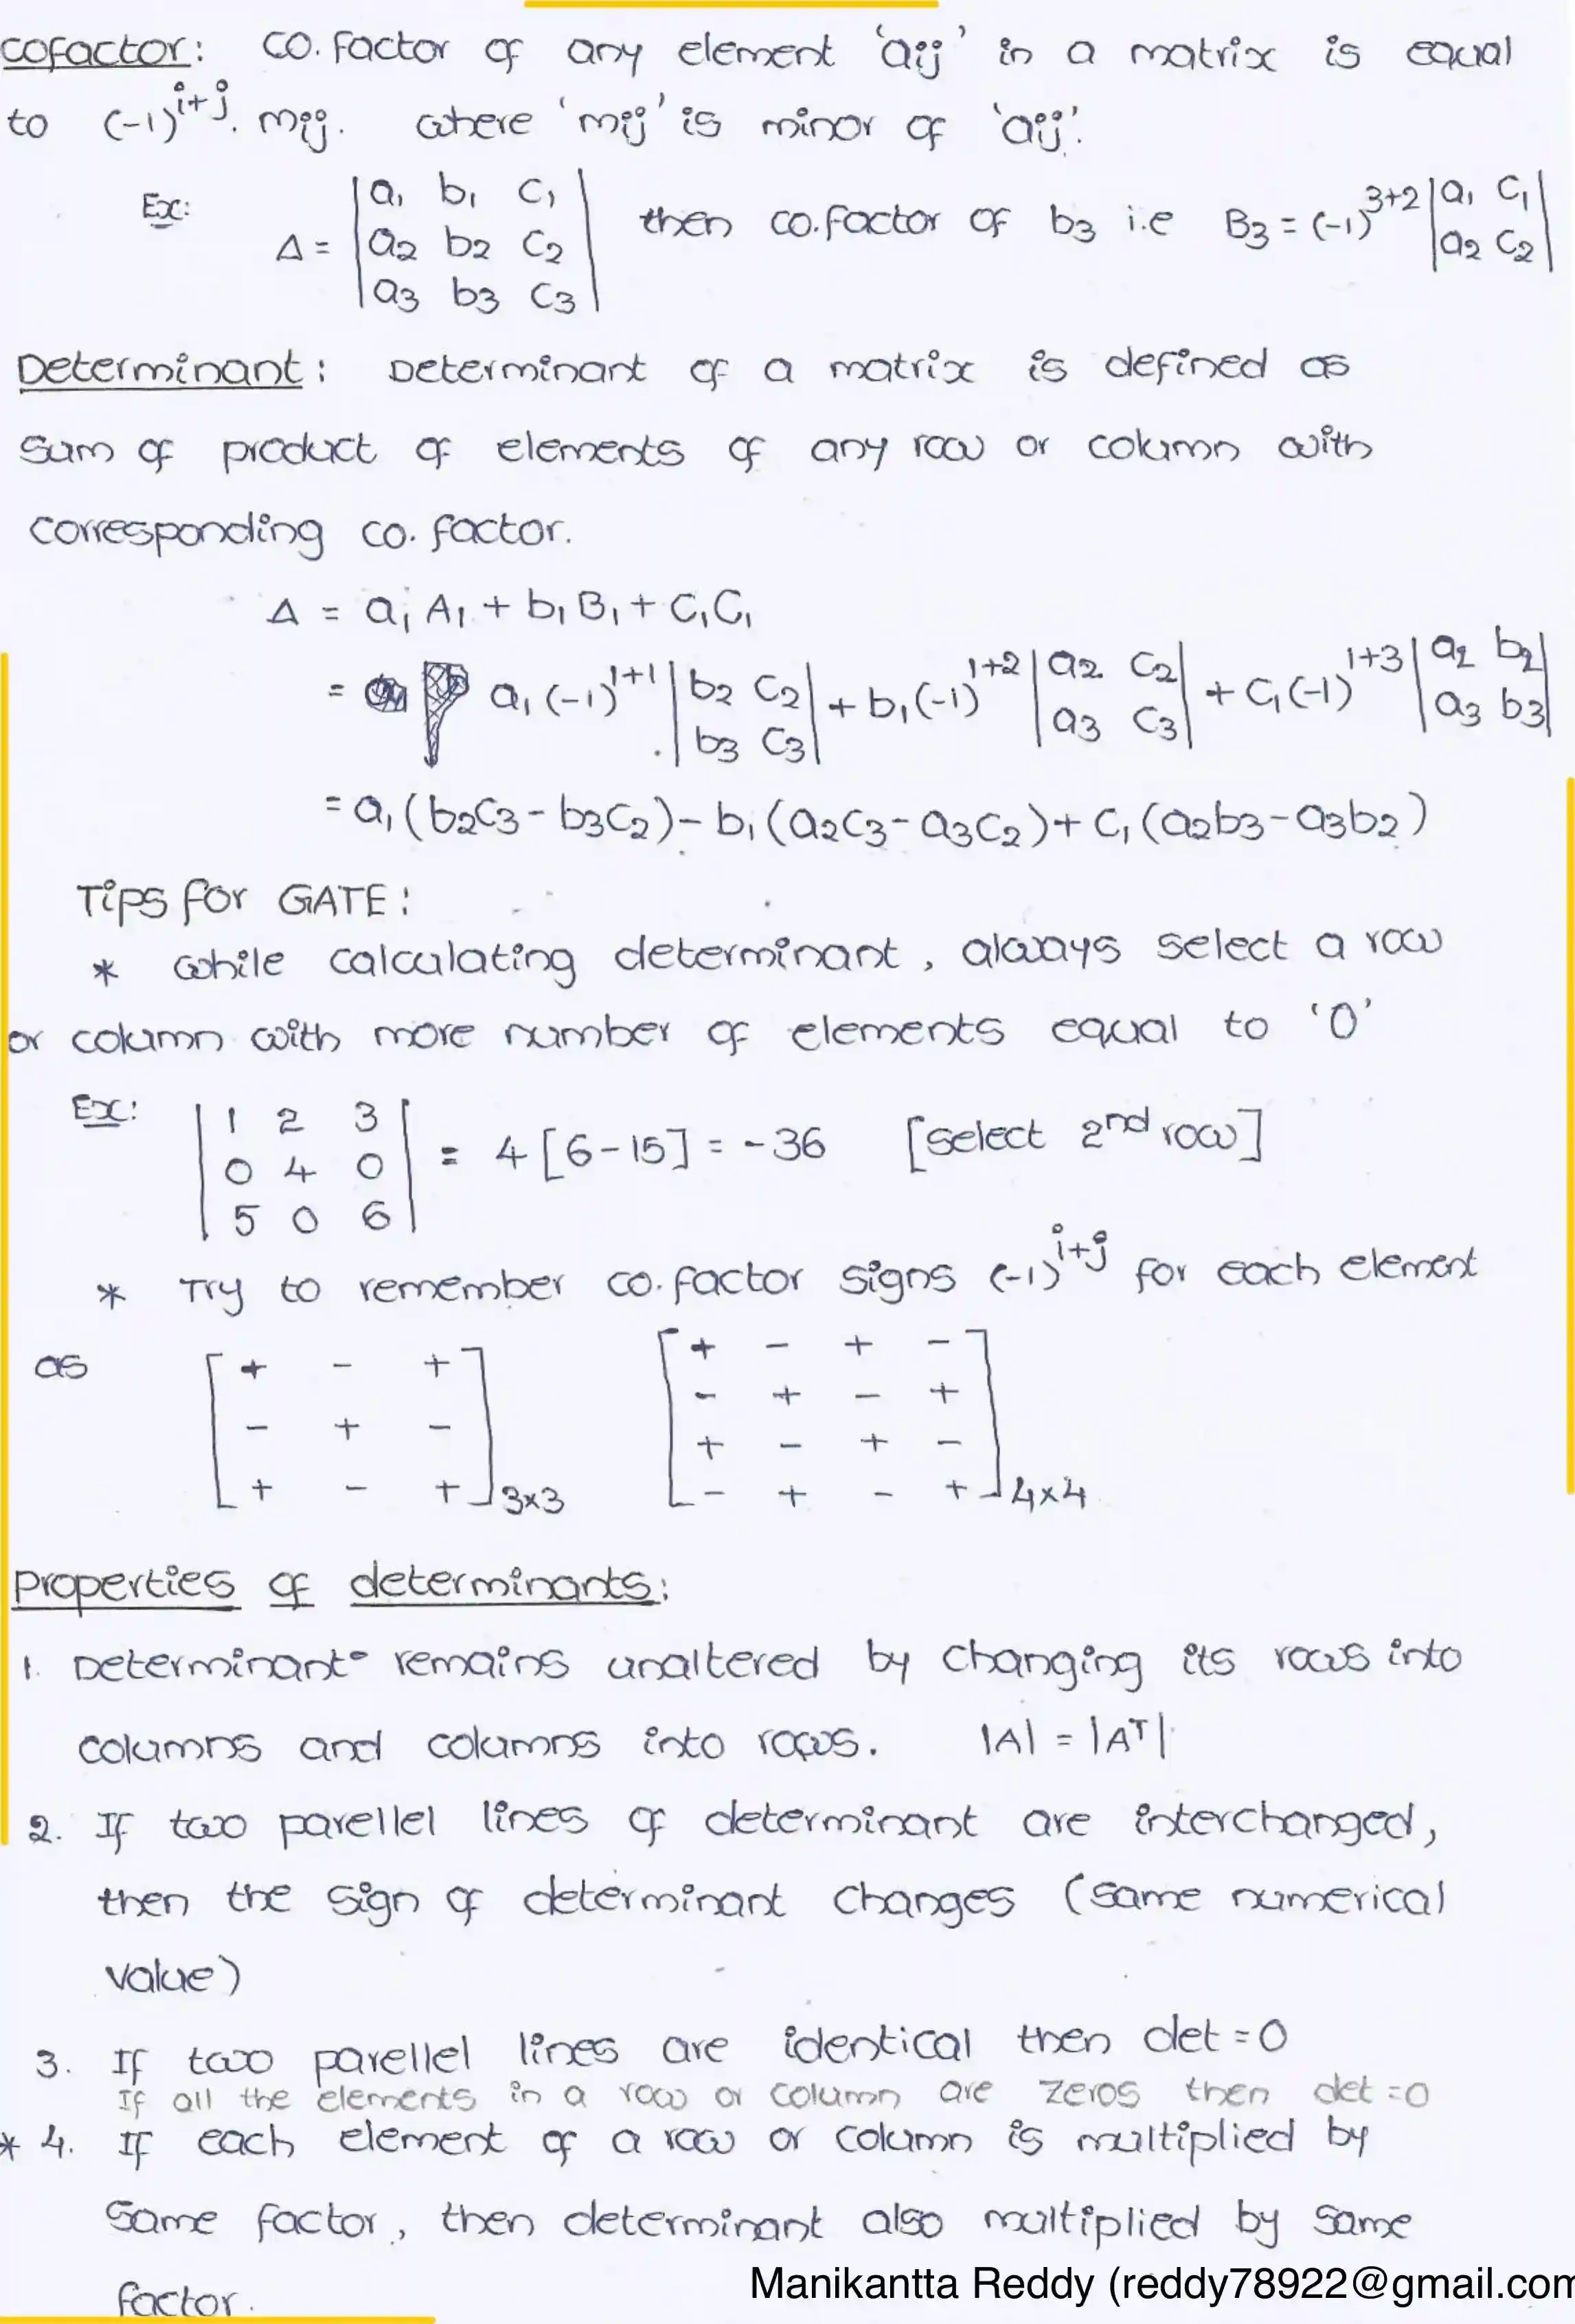 Cofactor: Co.factor of any element 'aij' in a matrix is equal
to (-1)^i+j. mij. where 'mij' is minor of 'aij'.
Ex: Δ = |a1 b1 c1| then co.factor of b3 i.e B3 = (-1)^3+2 |a1 c1|
|a2 b2 c2| |a2 c2|
|a3 b3 c3|
Determinant: Determinant of a matrix is defined as
sum of product of elements of any row or column with
corresponding co.factor.
Δ = a1 A1 + b1 B1 + c1 C1
= a1 (-1)^1+1 |b2 c2| + b1 (-1)^1+2 |a2 c2| + c1 (-1)^1+3 |a2 b2|
|b3 c3| |a3 c3| |a3 b3|
= a1 (b2c3 - b3c2) - b1 (a2c3 - a3c2) + c1 (a2b3 - a3b2)
Tips for GATE:
* while calculating determinant, always select a row
or column with more number of elements equal to '0'
Ex: |1 2 3|
|0 4 0| = 4 [6-15] = -36 [select 2nd row]
|5 0 6|
* Try to remember co.factor signs (-1)^i+j for each element
as [+ - +] [+ - + -]
[- + -] [- + - +]
[+ - +]3×3 [+ - + -]
[- + - +]4×4
Properties of determinants:
1. Determinant remains unaltered by changing its rows into
columns and columns into rows. |A| = |A^T|
2. If two parellel lines of determinant are interchanged,
then the sign of determinant changes (same numerical
value)
3. If two parellel lines are identical then det = 0
If all the elements in a row or column are zeros then det = 0
* 4. If each element of a row or column is multiplied by
same factor, then determinant also multiplied by same
factor.
Manikantta Reddy (reddy78922@gmail.com